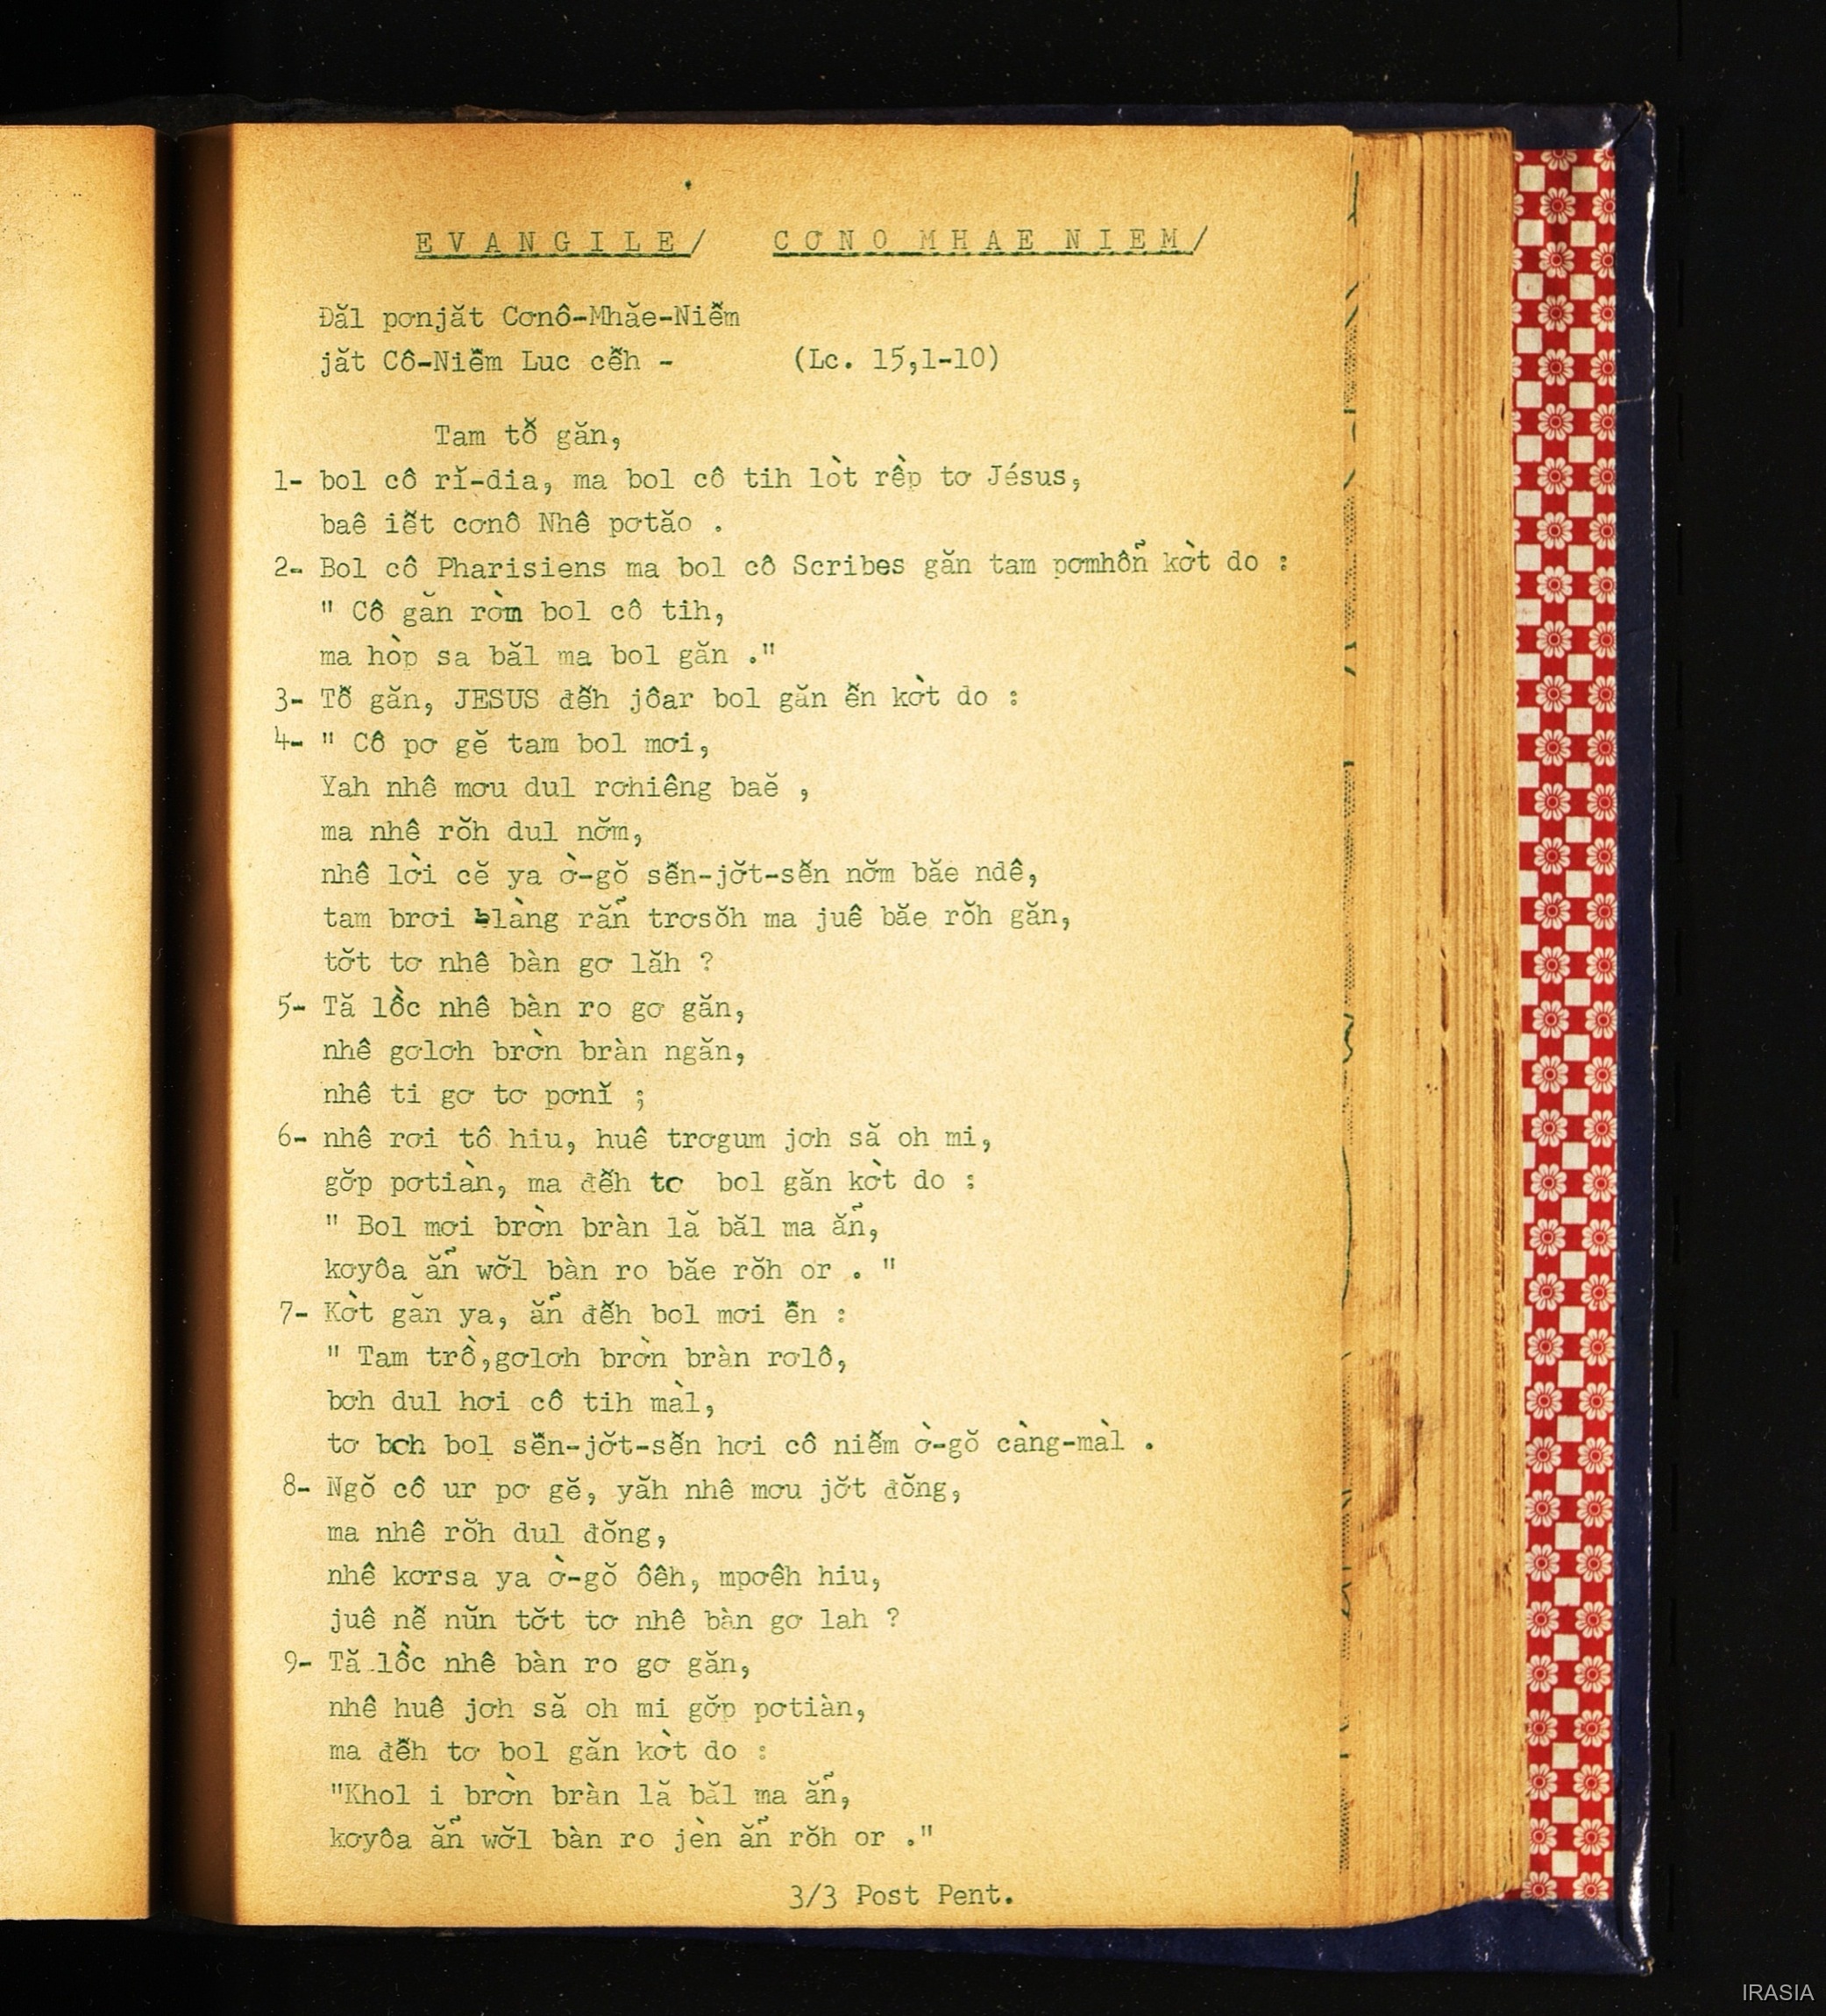 E V A N G I L E / C Ơ N O M H A E N I E M /
Đăl pơnjăt Cơnô-Mhăe-Niễm
jăt Cô-Niễm Luc cễh - (Lc. 15,1-10)
Tam tỗ găn,
1- bol cô rĭ-dia, ma bol cô tih lòt rềp tơ Jésus,
baê iễt cơnô Nhê pơtăo .
2- Bol cô Pharisiens ma bol cô Scribes găn tam pơmhôn̉ kờt do :
" Cô găn rờm bol cô tih,
ma hòp sa băl ma bol găn ."
3- Tỗ găn, JESUS đễh jôar bol găn ễn kờt do :
4- " Cô pơ gĕ tam bol mơi,
Yah nhê mơu dul rơhiêng baĕ ,
ma nhê rŏh dul nơ̆m,
nhê lời cĕ ya ờ-gŏ sễn-jơ̆t-sễn nơ̆m băe ndê,
tam brơi blàng răn̉ trơsŏh ma juê băe rŏh găn,
tơ̆t tơ nhê bàn gơ lăh ?
5- Tă lồc nhê bàn ro gơ găn,
nhê gơlơh brờn bràn ngăn,
nhê ti gơ tơ pơnĭ ;
6- nhê rơi tô hiu, huê trơgum jơh să oh mi,
gơ̆p pơtiàn, ma đễh tơ bol găn kờt do :
" Bol mơi brờn bràn lă băl ma ăn̉,
kơyôa ăn̉ wơ̆l bàn ro băe rŏh or . "
7- Kờt găn ya, ăn̉ đễh bol mơi ễn :
" Tam trồ,gơlơh brờn bràn rơlô,
bơh dul hơi cô tih màl,
tơ bơh bol sễn-jơ̆t-sễn hơi cô niễm ờ-gŏ càng-màl .
8- Ngŏ cô ur pơ gĕ, yăh nhê mơu jơ̆t đŏng,
ma nhê rŏh dul đŏng,
nhê kơrsa ya ờ-gŏ ôêh, mpơêh hiu,
juê nễ nŭn tơ̆t tơ nhê bàn gơ lah ?
9- Tă lồc nhê bàn ro gơ găn,
nhê huê jơh să oh mi gơ̆p pơtiàn,
ma đễh tơ bol găn kờt do :
"Khol i brờn bràn lă băl ma ăn̉,
kơyôa ăn̉ wơ̆l bàn ro jèn ăn̉ rŏh or ."
3/3 Post Pent.
IRASIA